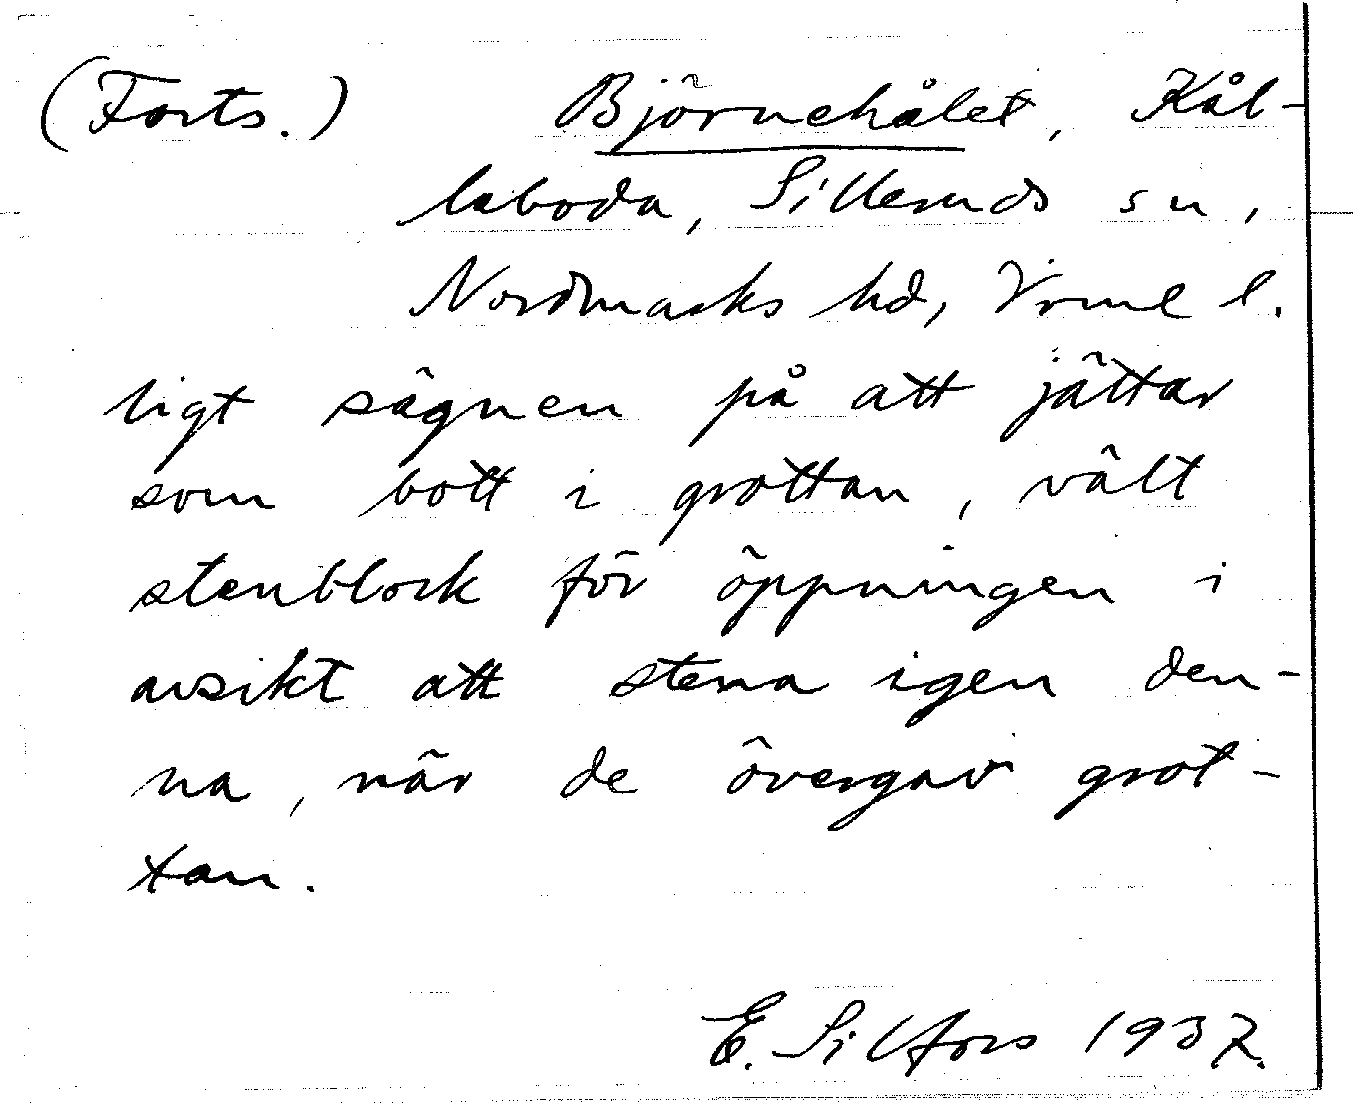 (Forts.) Björnehålet, Kål-
laboda, Silleruds sn,
Nordmarks hd, Vrml l.
ligt sägnen på att jättar
som bott i grottan, vält
stenblock för öppningen i
avsikt att stena igen den-
na, när de övergav grot-
tan.
E. Silfors 1937.